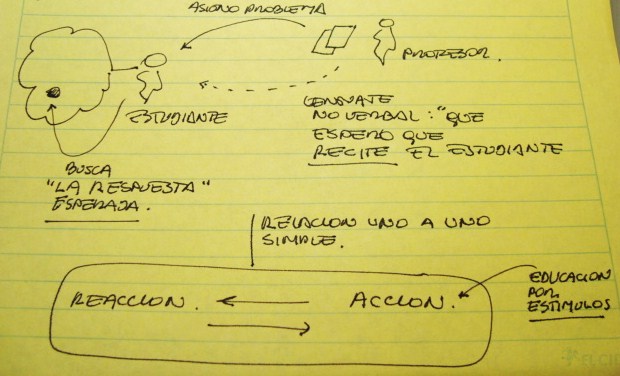 ASIGNO PROBLEMA
PROFESOR.
ESTUDIANTE
LENGUAJE
NO VERBAL: "QUE
ESPERO QUE
RECITE EL ESTUDIANTE
BUSCA
"LA RESPUESTA"
ESPERADA.
RELACION UNO A UNO
SIMPLE.
REACCION.
ACCION.
EDUCACION
POR
ESTIMULOS